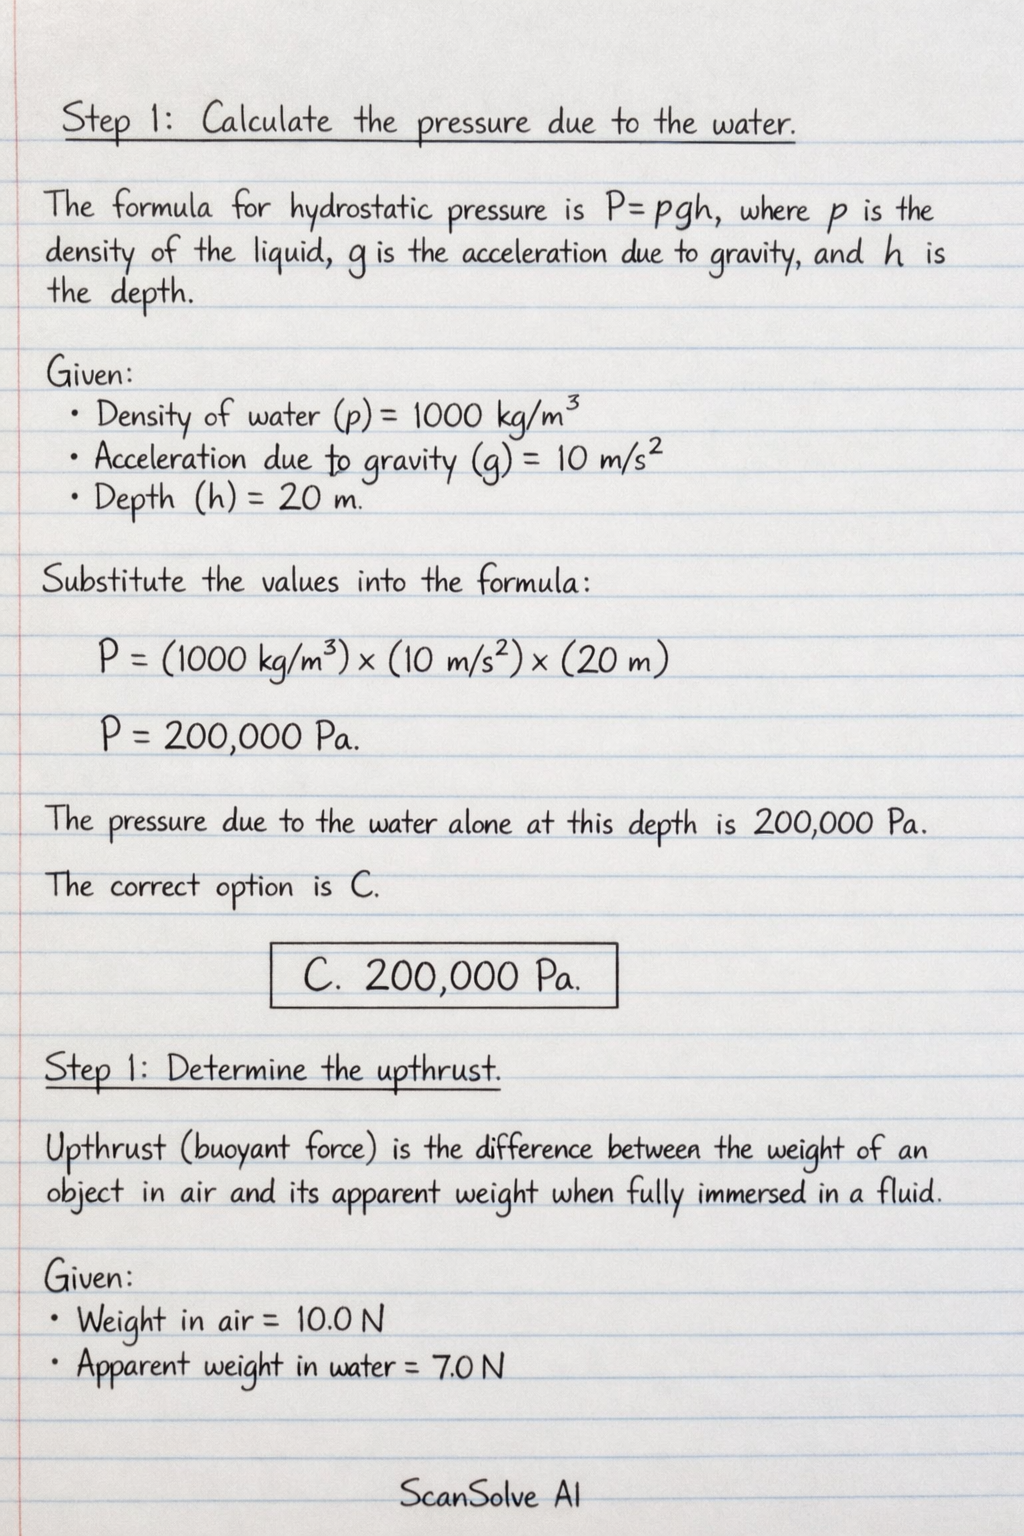 Step 1: Calculate the pressure due to the water.
The formula for hydrostatic pressure is P=pgh, where p is the
density of the liquid, g is the acceleration due to gravity, and h is
the depth.
Given:
• Density of water (p) = 1000 kg/m³
• Acceleration due to gravity (g) = 10 m/s²
• Depth (h) = 20 m.
Substitute the values into the formula:
P = (1000 kg/m³) x (10 m/s²) x (20 m)
P = 200,000 Pa.
The pressure due to the water alone at this depth is 200,000 Pa.
The correct option is C.
C. 200,000 Pa.
Step 1: Determine the upthrust.
Upthrust (buoyant force) is the difference between the weight of an
object in air and its apparent weight when fully immersed in a fluid.
Given:
• Weight in air = 10.0 N
• Apparent weight in water = 7.0 N
ScanSolve AI